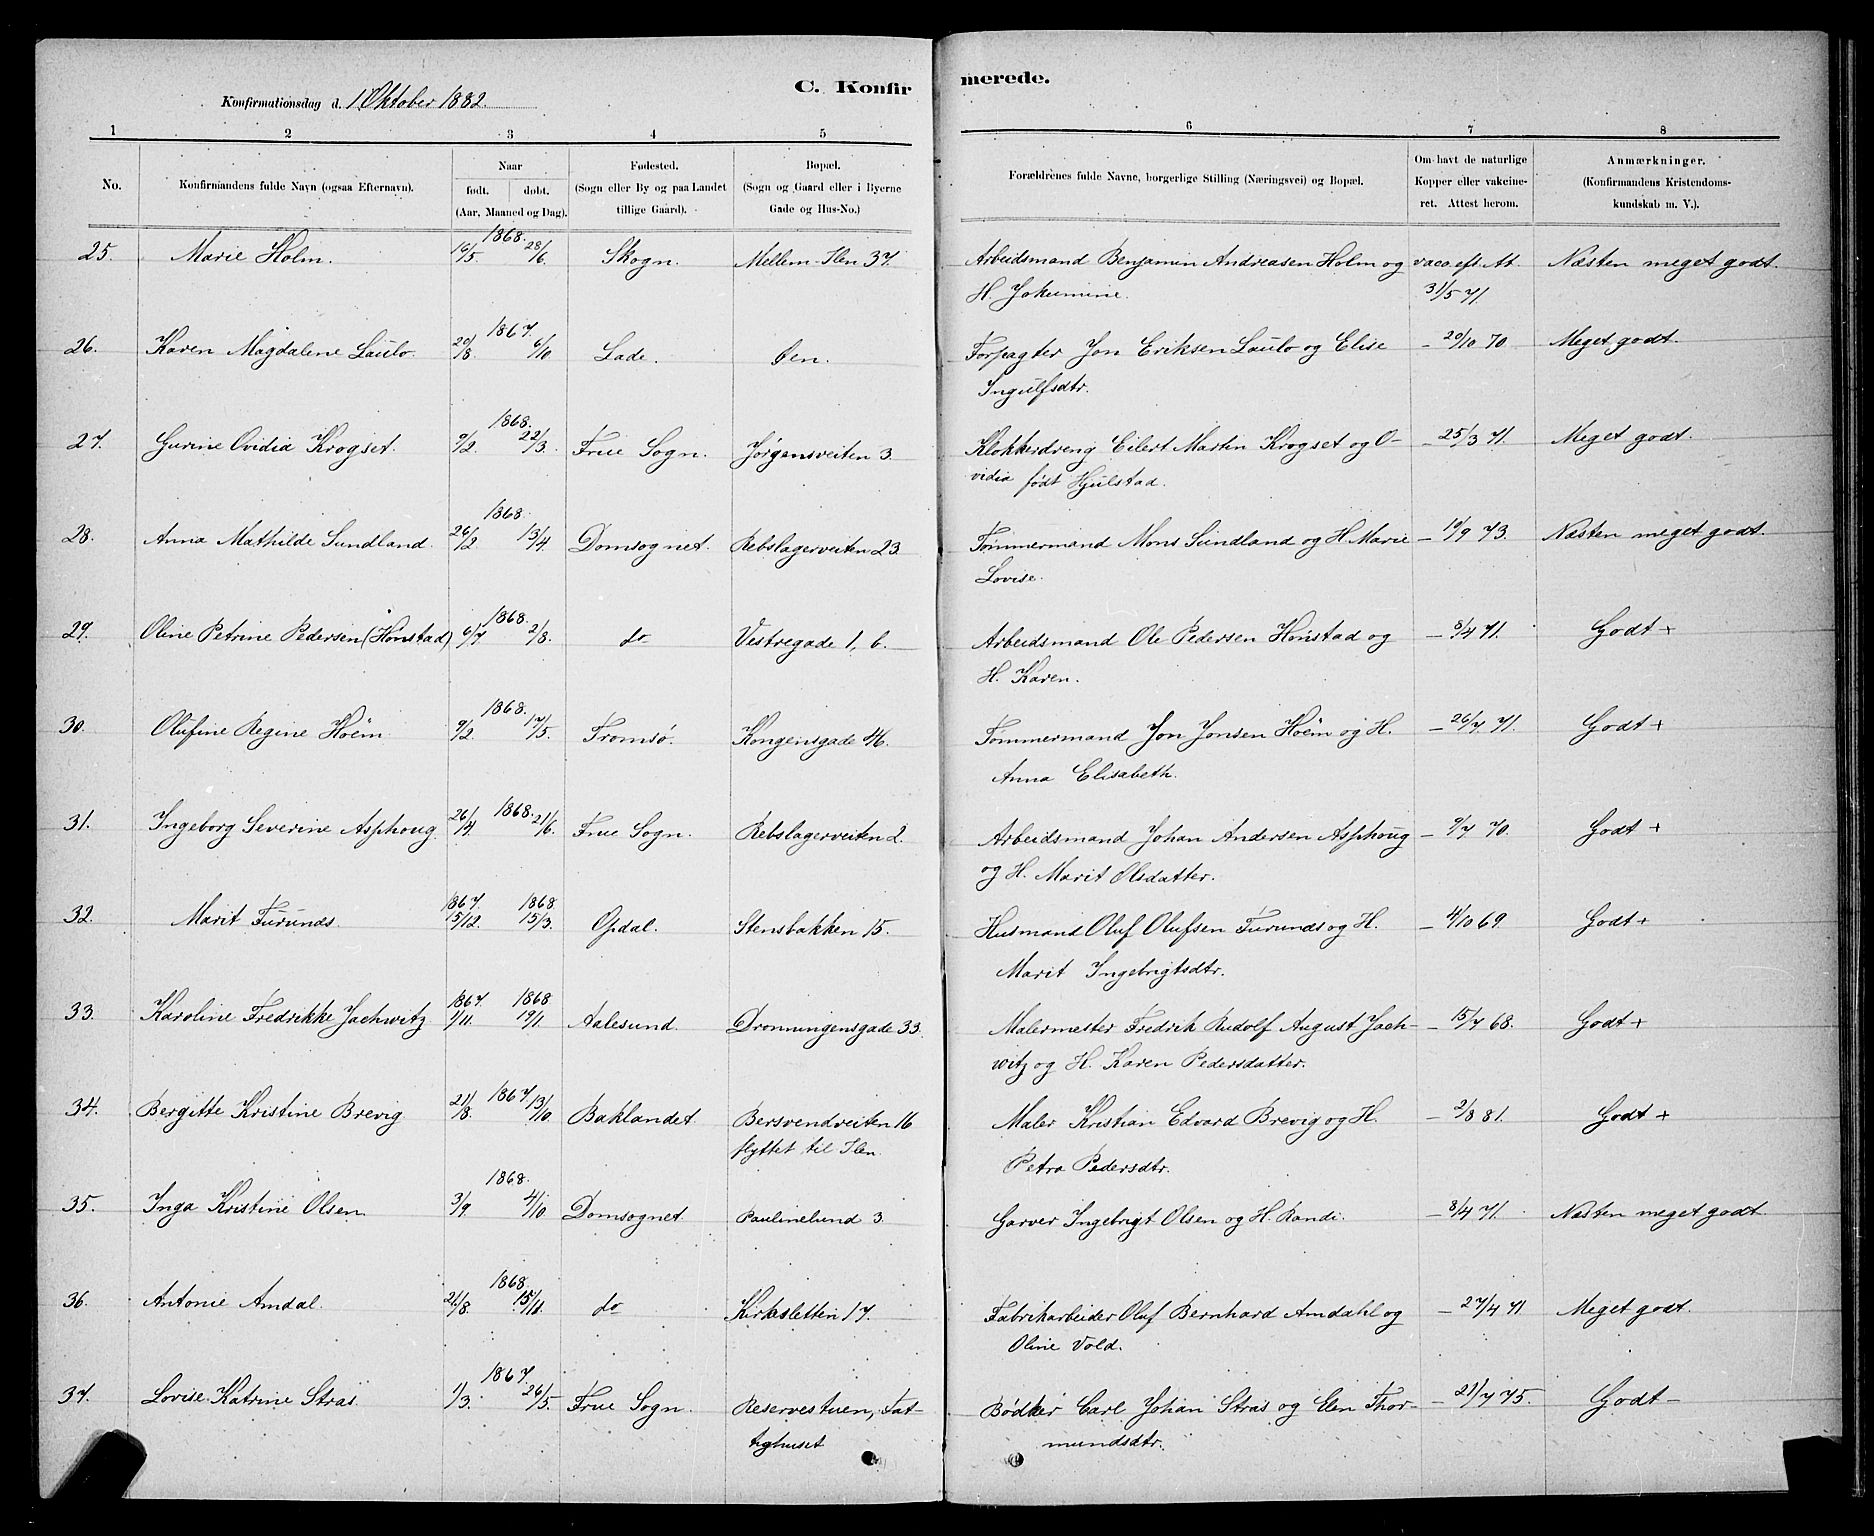 C. Konfirmerede.
Konfirmationsdag d. 1 Oktober 1882.
1 2 3 4 5 6 7 8
No. | Konfirmandens fulde Navn (ogsaa Efternavn). | Naar født. døbt. (Aar, Maaned og Dag). | Fødested. (Sogn eller By og paa Landet tillige Gaard). | Bopæl. (Sogn og Gaard eller i Byerne Gade og Hus-No.) | Forældrenes fulde Navne, borgerlige Stilling (Næringsvei) og Bopæl. | Om havt de naturlige Kopper eller vakcineret. Attest herom. | Anmærkninger. (Konfirmandens Kristendomskundskab m. V.).
25. Marie Holm. 1868. 16/5. 28/6. Skogn. Mellem-Ilen 37. Arbeidsmand Benjamin Andreasen Holm og vacc. eft. Att. Næsten meget godt.
H. Jokumine. 31/5 71.
26. Karen Magdalene Laulo 1867. 20/8. 6/10 Lade. Forpagter Jon Eriksen Laulo og Elise — 20/10 70 Meget godt.
Ingulfsdtr.
27. Gurine Ovidia Krogset. 1868. 9/2. 22/3. Frue Sogn. Jørgensveiten 3. Klokkerdreng Eilert Martin Krogset og O- — 25/3 71. Meget godt.
vidia født Hjulstad.
28. Anna Mathilde Sundland. 1868. 26/2. 13/4. Domsognet. Rebslagerveiten 23. Tømmermand Mons Sundland og H. Marie — 19/9 73. Næsten meget godt.
Lovise.
29. Oline Petrine Pedersen (Honstad) 1868. 6/7. 2/8. do Vestregade 1, b. Arbeidsmand Ole Pedersen Honstad og — 8/4 71. Godt +
H. Karen.
30. Olufine Regine Hoëm 1868. 9/2. 17/5. Tromsø. Kongensgade 46. Tømmermand Jon Jonsen Hoëm og H. — 26/7 71. Godt +
Anna Elisabeth.
31. Ingeborg Severine Asphoug 1868. 26/4. 21/6. Frue Sogn. Rebslagerveiten 2. Arbeidsmand Johan Andersen Asphoug — 9/7 70. Godt +
og H. Marit Olsdatter.
32. Marit Furunds. 1867. 15/12. 1868. 15/3. Opdal. Stensbakken 15. Husmand Oluf Olufsen Furunds og H. — 4/10 69. Godt +
Marit Ingebrigtsdtr.
33. Karoline Fredrikke Jachwitz 1867. 1/11. 1868. 19/1. Aalesund. Dronningensgade 33. Malermester Fredrik Rudolf August Jach- — 15/7 68. Godt +
witz og H. Karen Pedersdatter.
34. Bergitte Kristine Brevig 21/8. 1867 13/10. Baklandet. Bersvendveiten 16 Maler Kristian Edvard Brevig og H. — 2/8 81. Godt +
flyttet til Ilen. Petra Pedersdtr.
35. Inga Kristine Olsen. 1868. 3/9. 4/10. Domsognet. Paulinelund 3. Garver Ingebrigt Olsen og H. Randi. — 8/4 71. Næsten meget godt
36. Antonie Amdal. 1868. 21/8. 15/11. do Kirkesletten 17. Fabrikarbeider Oluf Bernhard Amdahl og — 27/4 71. Meget godt.
Oline Vold.
37. Lovise Katrine Stras 1867. 1/3. 26/5. Frue Sogn. Reservestuen, Fat- Bødker Carl Johan Stras og Elen Thor- — 21/7 75. Godt —
tighuset mundsdtr.